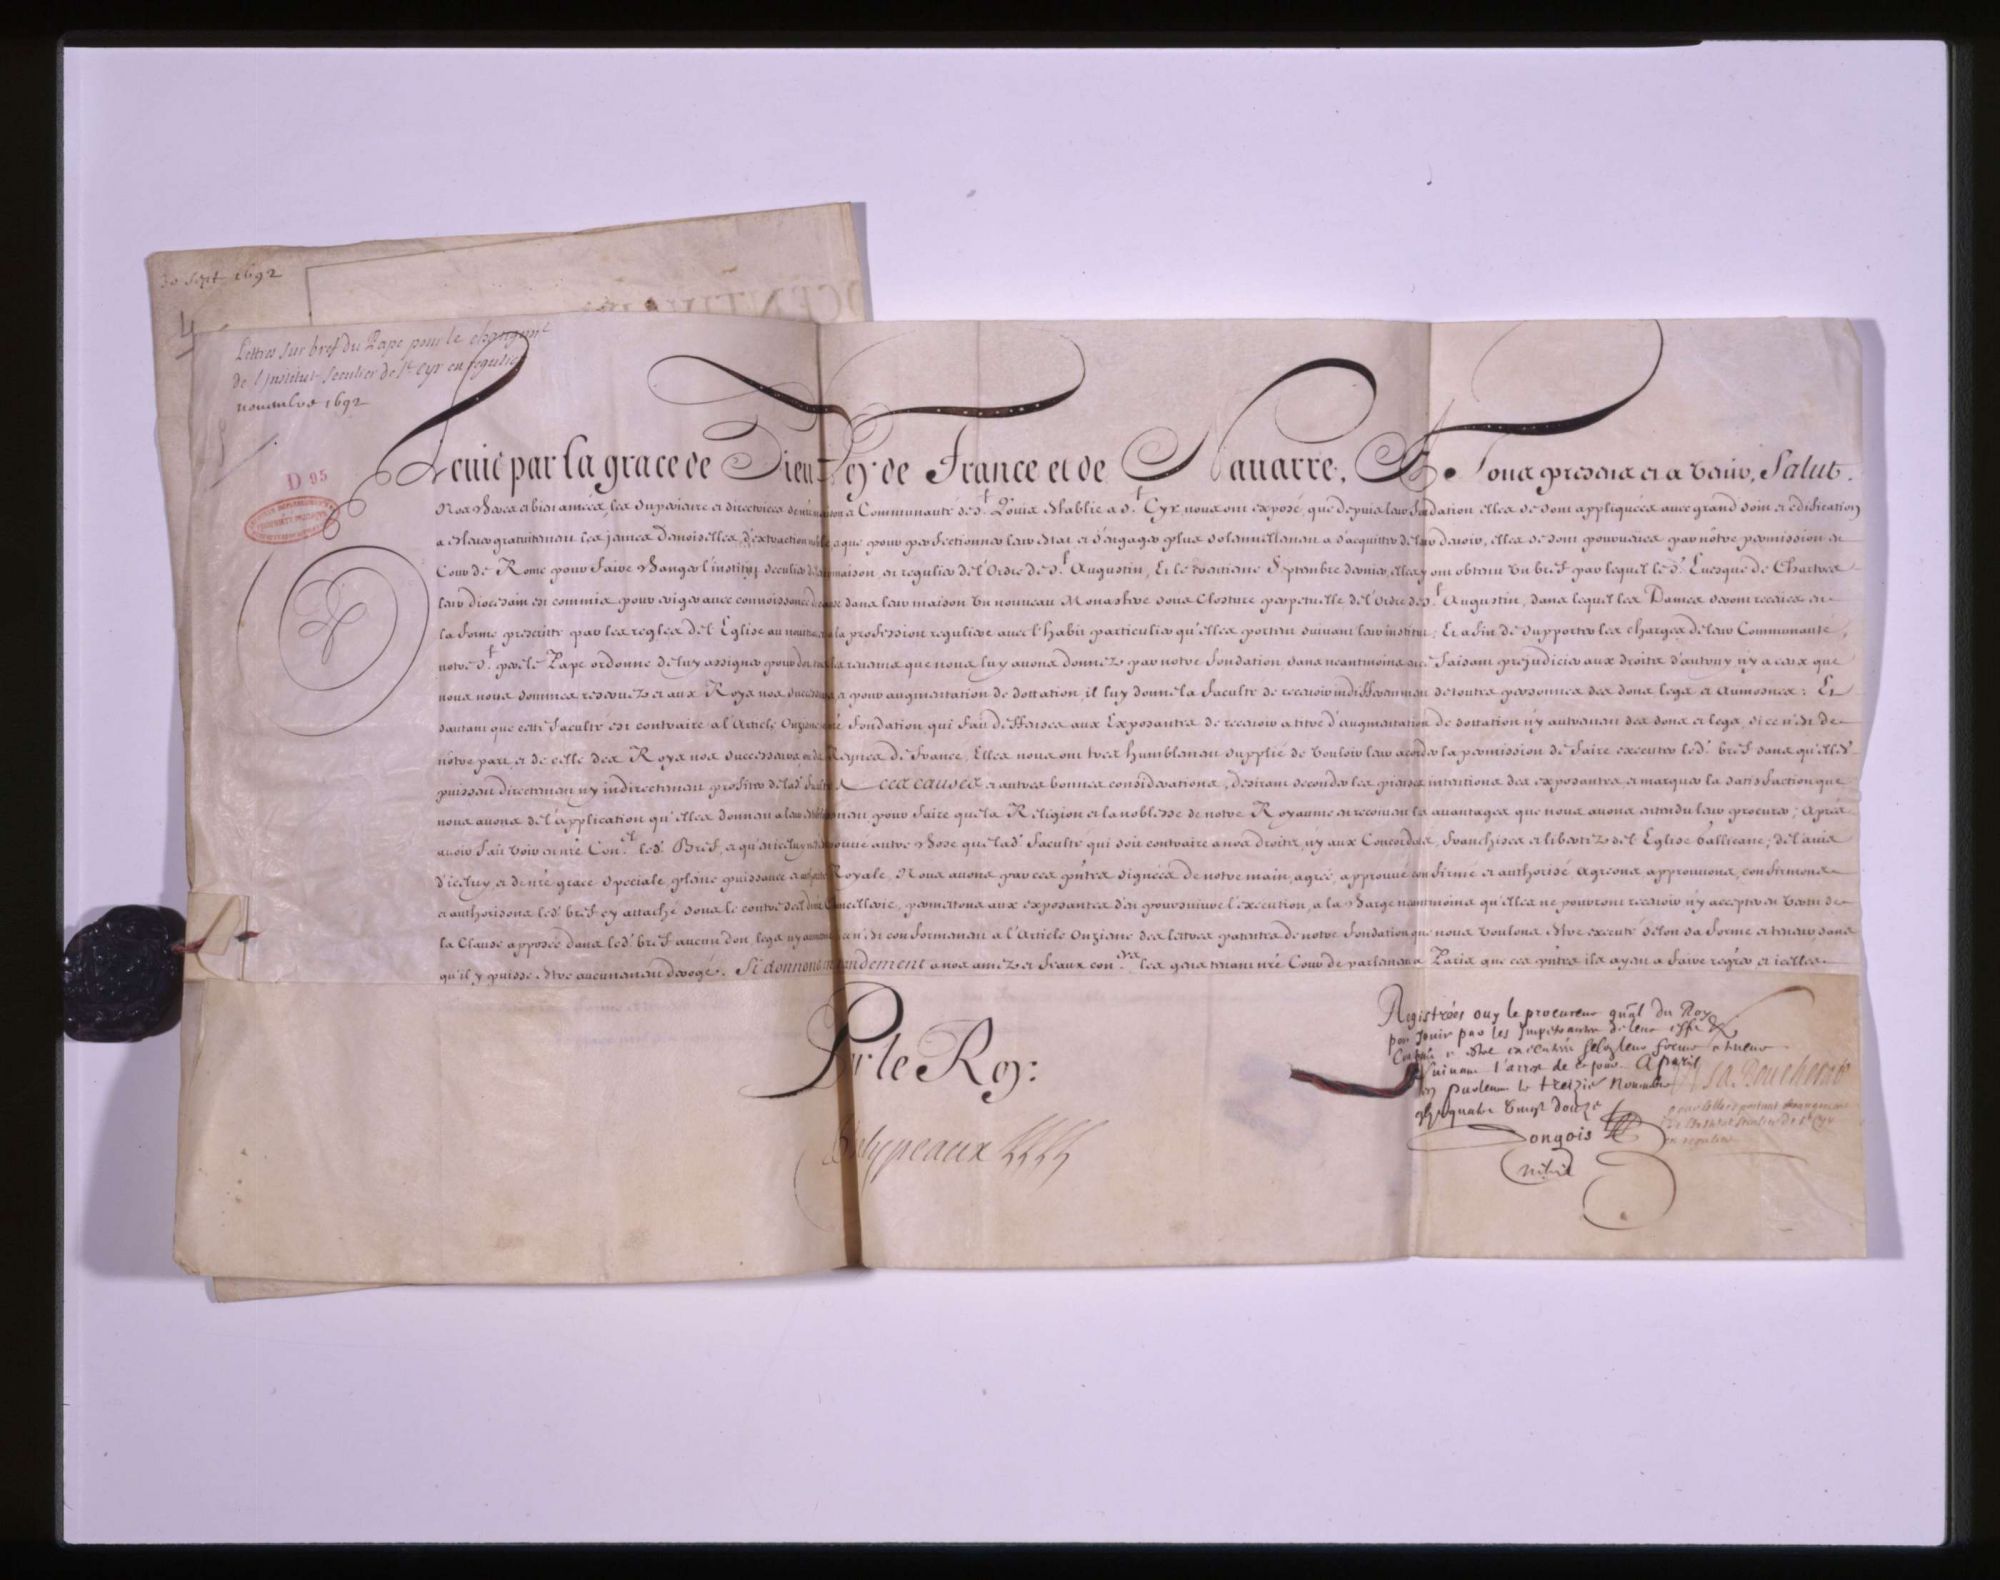 30 Sept 1692
4
Lettres sur bref du Pape pour le changem.t
de l'Institut seculier de S.t Cyr en regulier
novembre 1692
D 95
Louis par la grace de Dieu Roy de France et de Navarre, A Tous presens et a venir, Salut.
Nos cheres et bien amées, les Superieure et directrices de nôtre maison et Communauté de S.t Loüis establie a S.t Cyr, nous ont exposé, que depuis leur fondation elles se sont appliquées avec grand soin et edification
a eslever gratuitement les jeunes Damoiselles d'extraction noble, et que pour perfectionner leur estat et s'engager plus solennellement a s'acquitter de leur devoir, elles se sont pourvuëues par nôtre permission en
Cour de Rome pour faire changer l'institut seculier de leur maison, en regulier de l'Ordre de S.t Augustin, Et le trentieme Septembre dernier, elles y ont obtenu un bref par lequel le S.r Evesque de Chartres
leur diocesain est commis pour eriger avec connoissance de cause dans leur maison un nouveau Monastere sous Closture perpetuelle de l'Ordre de S.t Augustin, dans lequel les Dames seront receües en
la forme prescritte par les regles de l'Eglise au noviciat et a la profession reguliere avec l'habit particulier qu'elles portent suivant leur institut; Et afin de supporter les charges de leur Communauté,
notre S.t pere le Pape ordonne de luy assigner pour dot les revenus que nous luy avons donnez par notre fondation sans neantmoins faisant prejudicier aux droits d'autruy ny a ceux que
nous nous sommes reservez et aux Roys nos successeurs, et pour augmentation de dottation, il luy donne la faculté de recevoir indifferemment de toutes personnes des dons legs et aumosnes; Et
dautant que cette faculté est contraire a l'Article Onzieme de nôtre fondation qui fait deffenses aux Exposantes de recevoir a titre d'augmentation de dottation ny autrement des dons et legs, si ce n'est de
nôtre part, et de celle des Roys nos successeurs, et des Reynes de France, Elles nous ont tres humblement supplié de vouloir leur acorder la permission de faire executer led. bref sans qu'elles
puissent directement ny indirectement profiter de lad. faculté. A ces causes et autres bonnes considerations, desirant seconder les pieuses intentions des exposantes et marquer la satisfaction que
nous avons de l'application qu'elles donnent a leur establissement pour faire que la Religion et la noblesse de notre Royaume en reçoivent les avantages que nous avons entendu leur procurer; Aprés
avoir fait voir en nrē Con.el led. Bref, et qu'en iceluy ne se trouve autre chose que lad. faculté qui soit contraire a nos droits, ny aux Concordats, franchises et libertez de l'Eglise Gallicane; de l'avis
d'iceluy, et de nrē grace speciale, plaine puissance et authorité Royale, Nous avons par ces pñtes signées de notre main, agreé, approuvé confirmé et authorisé agreons approuvons, confirmons
et authorisons led. bref cy attaché sous le contrescel de nrē Chancellerie, permettons aux exposantes d'en poursuivre l'execution, a la charge neantmoins qu'elles ne pourront recevoir ny accepter en vertu de
la Clause apposée dans led. bref aucun don, legs ny aumosne si ce n'est conformement a l'Article Onzieme des lettres patentes de notre fondation que nous voulons estre executé selon sa forme et teneur, sans
qu'il y puisse estre aucunement derogé. Si donnons en mandement a nos amez et feaux con.ers les gens tenans nrē Cour de parlement a Paris que ces pñtes ils ayent a faire regrēr et icelles
Par le Roy:
Phelypeaux
Registrées ouy le procureur gnāl du Roy
pour Jouir par les Impetrantes de leur effet &
Contenu et estre executées selon leur forme et teneur
Suivant l'arrest de ce jour A paris
en parlement le treizie Novembre
quatre vingt douze
Dongois
Visa Boucherat
pour lettres portant changement
de l'Institut seculier de S.t Cyr
en regulier